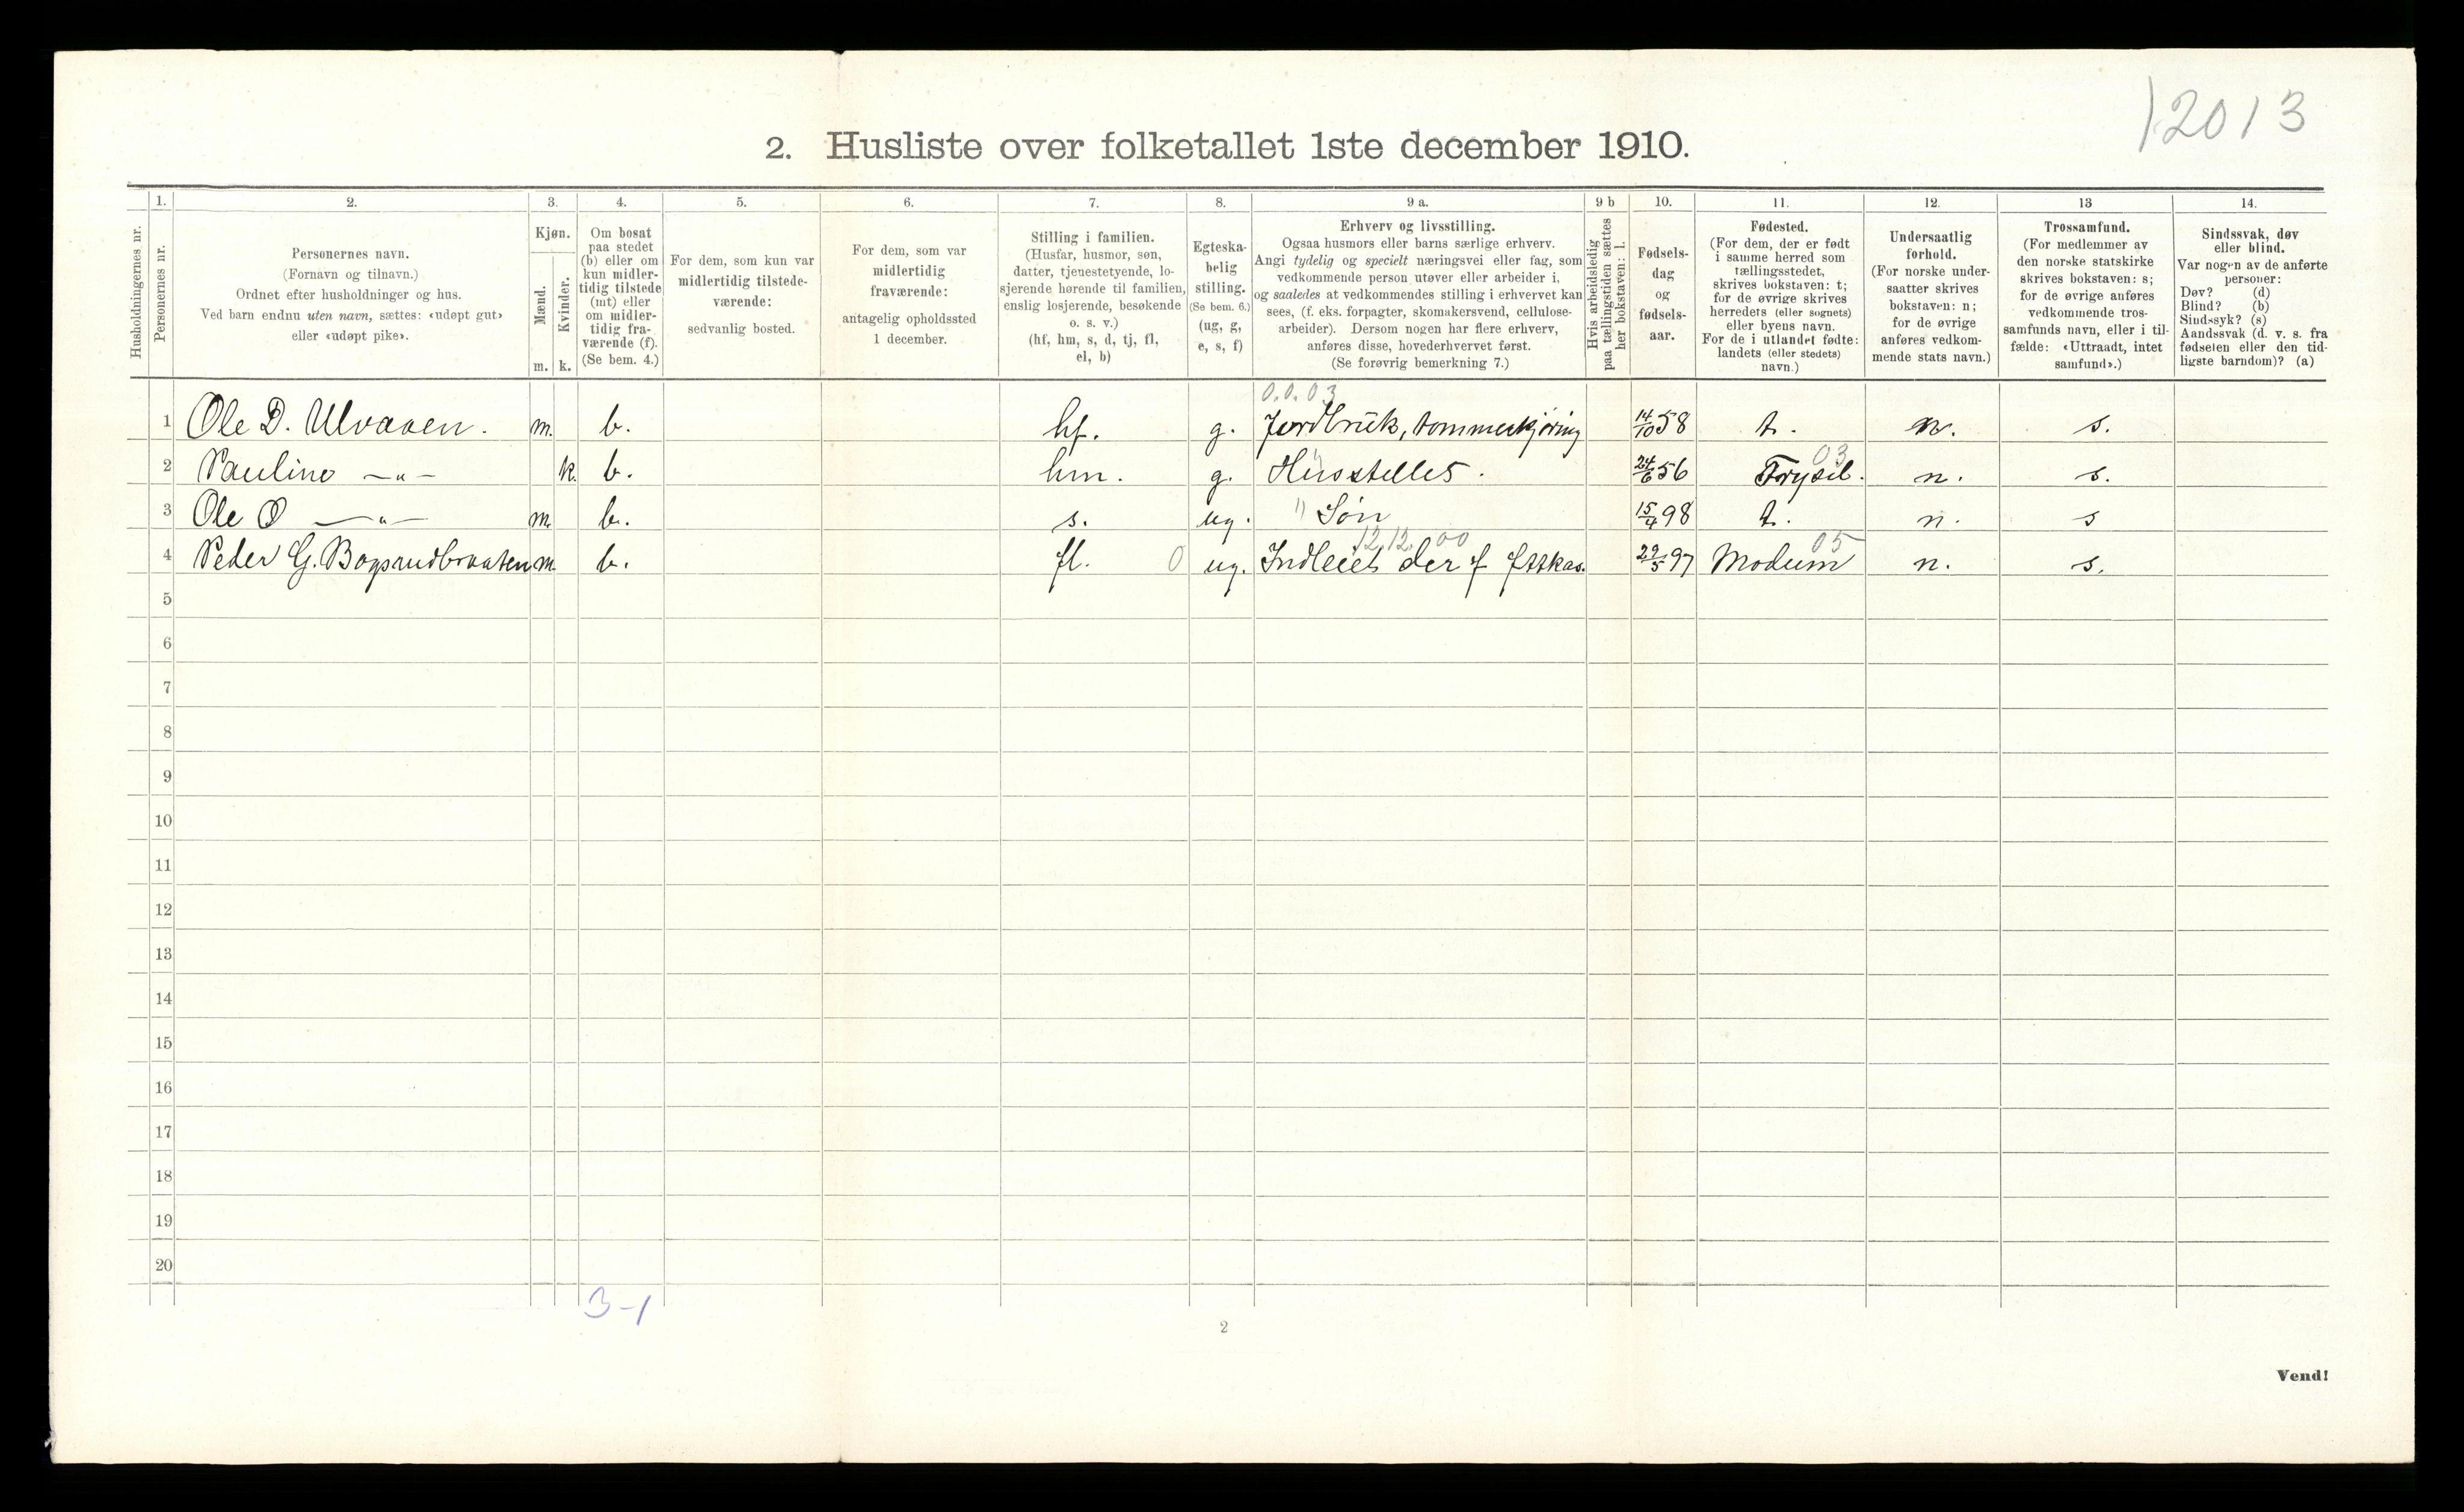 12013
2. Husliste over folketallet 1ste december 1910.
Husholdningernes nr.
1.
Personernes nr.
2.
Personernes navn.
(Fornavn og tilnavn.)
Ordnet efter husholdninger og hus.
Ved barn endnu uten navn, sættes: «udøpt gut»
eller «udøpt pike».
3.
Kjøn.
Mænd.
Kvinder.
m. k.
4.
Om bosat
paa stedet
(b) eller om
kun midler-
tidig tilstede
(mt) eller
om midler-
tidig fra-
værende (f).
(Se bem. 4.)
5.
For dem, som kun var
midlertidig tilstede-
værende:
sedvanlig bosted.
6.
For dem, som var
midlertidig
fraværende:
antagelig opholdssted
1 december.
7.
Stilling i familien.
(Husfar, husmor, søn,
datter, tjenestetyende, lo-
sjerende hørende til familien,
enslig losjerende, besøkende
o. s. v.)
(hf, hm, s, d, tj, fl,
el, b)
8.
Egteska-
belig
stilling.
(Se bem. 6.)
(ug, g,
e, s, f)
9 a.
Erhverv og livsstilling.
Ogsaa husmors eller barns særlige erhverv.
Angi tydelig og specielt næringsvei eller fag, som
vedkommende person utøver eller arbeider i,
og saaledes at vedkommendes stilling i erhvervet kan
sees, (f. eks. forpagter, skomakersvend, cellulose-
arbeider). Dersom nogen har flere erhverv,
anføres disse, hovederhvervet først.
(Se forøvrig bemerkning 7.)
9 b
Hvis arbeidsledig
paa tællingstiden sættes
her bokstaven: l.
10.
Fødsels-
dag
og
fødsels-
aar.
11.
Fødested.
(For dem, der er født
i samme herred som
tællingsstedet,
skrives bokstaven: t;
for de øvrige skrives
herredets (eller sognets)
eller byens navn.
For de i utlandet fødte:
landets (eller stedets)
navn.)
12.
Undersaatlig
forhold.
(For norske under-
saatter skrives
bokstaven: n;
for de øvrige
anføres vedkom-
mende stats navn.)
13
Trossamfund.
(For medlemmer av
den norske statskirke
skrives bokstaven: s;
for de øvrige anføres
vedkommende tros-
samfunds navn, eller i til-
fælde: «Uttraadt, intet
samfund».)
14.
Sindssvak, døv
eller blind.
Var nogen av de anførte
personer:
Døv? (d)
Blind? (b)
Sindssyk? (s)
Aandssvak (d. v. s. fra
fødselen eller den tid-
ligste barndom)? (a)
0.0.03
1 Ole D. Ulvaaen. m. b. hf. g. Jordbruk, tømmerkjøring 14/10 58 t. n. s.
03
2 Pauline —„— k. b. hm. g. Husstelles. 24/6 56 Trysil. n. s.
3 Ole O —„— m. b. s. ug. " Søn 15/4 98 t. n. s
12.12.00 05
4 Peder G. m. b. fl. 0 ug. Indleiet der f 29/5 97 Modum n. s.
5
6
7
8
9
10
11
12
13
14
15
16
17
18
19
20
3-1
2
Vend!